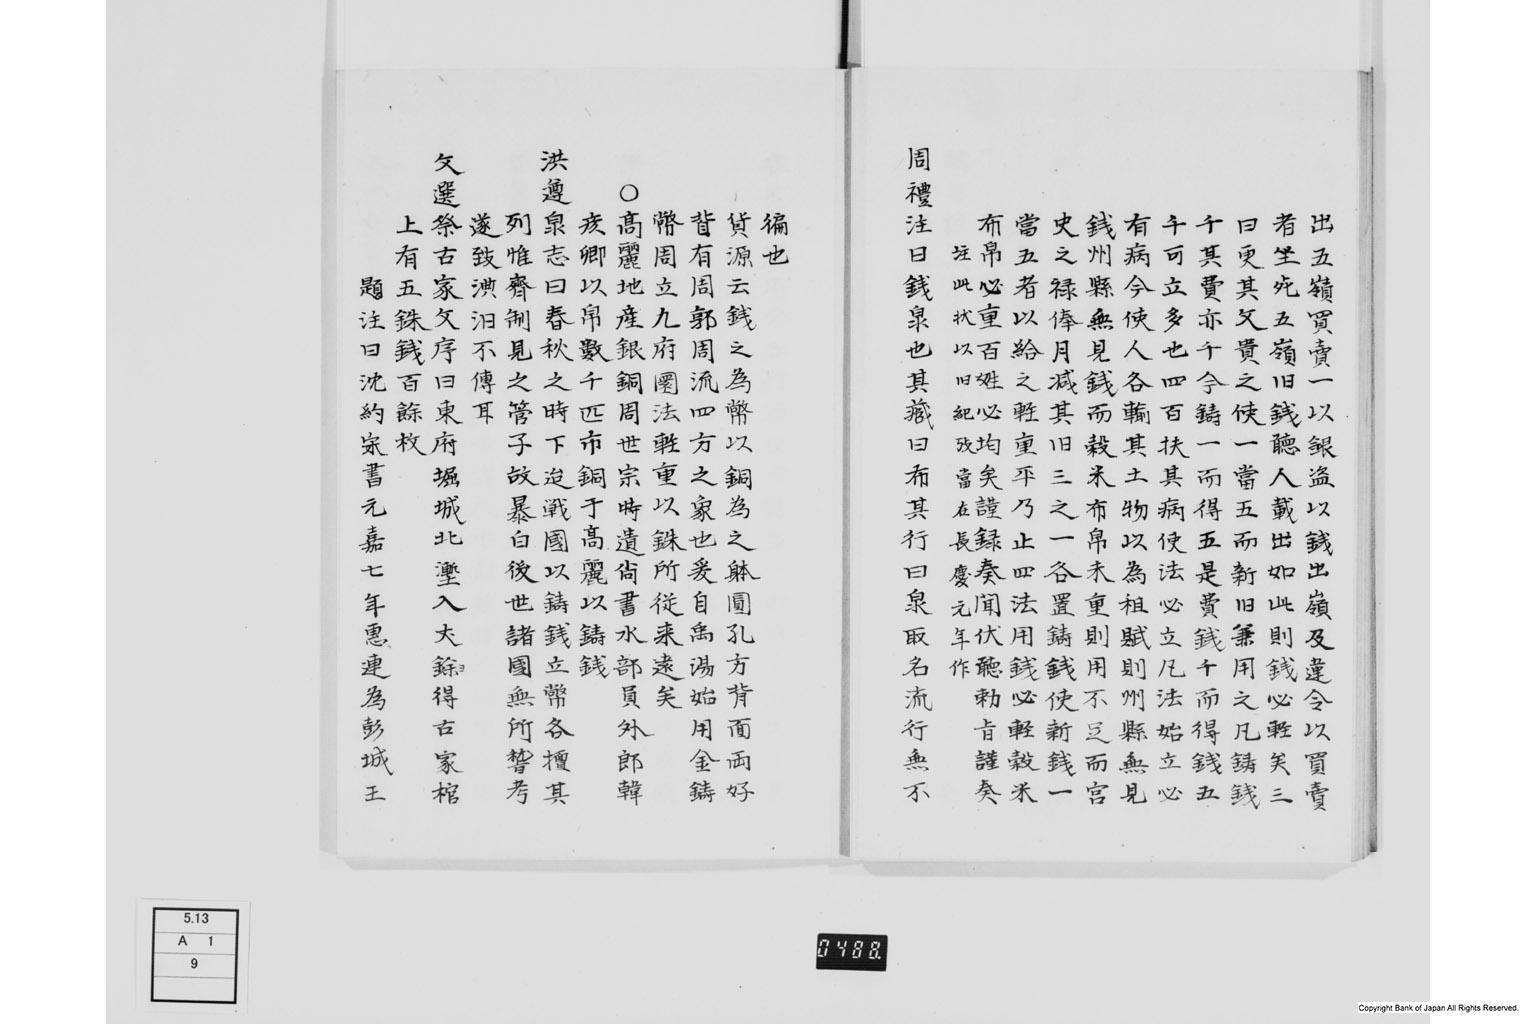 出五嶺買賣一以銀盗以錢出嶺及違令以買賣
者坐死五嶺旧錢聴人載出如此則錢必軽矣三
曰更其文貴之使一當五而新旧兼用之凡鋳錢
千其費亦千今鋳一而得五是費錢千而得錢五
千可立多也四百扶其病使法必立凡法始立必
有病今使人各輸其土物以為租賦則州縣無見
錢州縣無見錢而穀米布帛未重則用不足而官
史之禄俸月減其旧三之一各置鋳錢使新錢一
當五者以給之軽重平乃止四法用錢必軽穀米
布帛必重百姓必均矣謹録奏聞伏聴勅旨謹奏
註此状以旧紀攷當在長慶元年作
周禮注曰錢泉也其蔵曰布其行曰泉取名流行無不
徧也
貨源云錢之為幣以銅為之躰圓孔方背面両好
背有周郭周流四方之象也爰自禹湯始用金鋳
幣周立九府圜法軽重以銖所従来遠矣
○高麗地産銀銅周世宗時遺尚書水部員外郎韓
彦卿以帛数千匹市銅于高麗以鋳錢
洪遵泉志曰春秋之時下迨戦國以鋳錢立幣各擅其
列惟齊制見之管子故暴白後世諸國無所暬考
遂致湧汨不傳耳
文選祭古冢文序曰東府堀城北壍入丈餘得古冢棺
上有五銖錢百餘枚
題注曰沈約宋書元嘉七年惠連為彭城王
5.13
A 1
9
0488.
Copyright Bank of Japan All Rights Reserved.